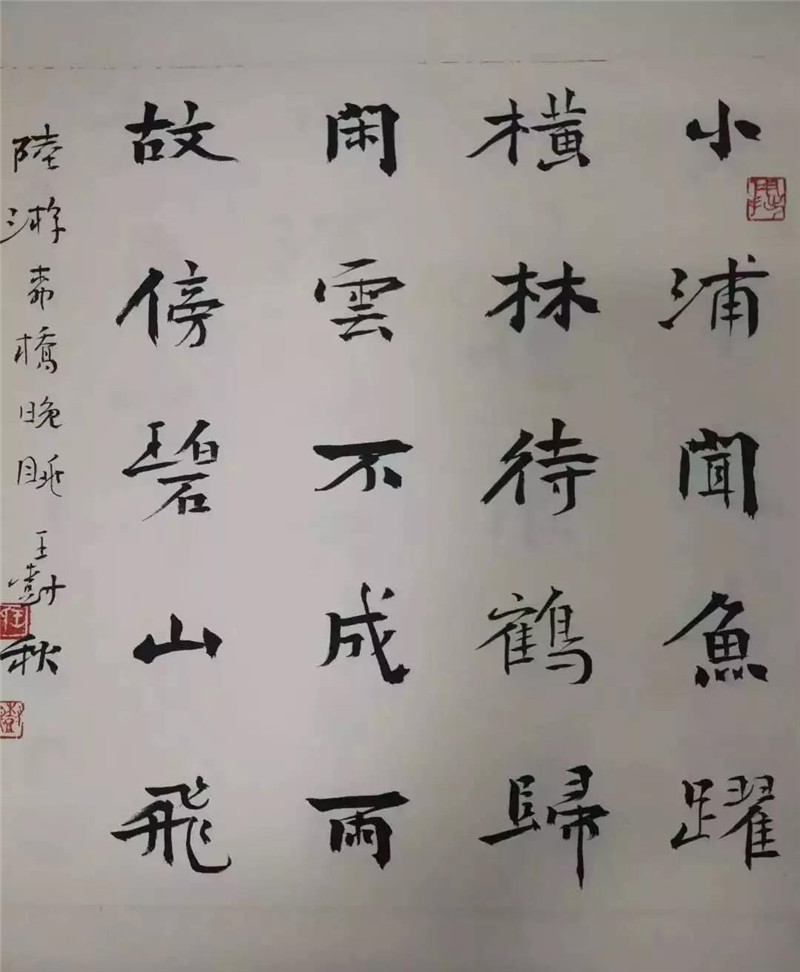 小浦聞魚躍
橫林待鶴歸
閑雲不成雨
故傍碧山飛
陸游柳橋晚眺 王澍秋